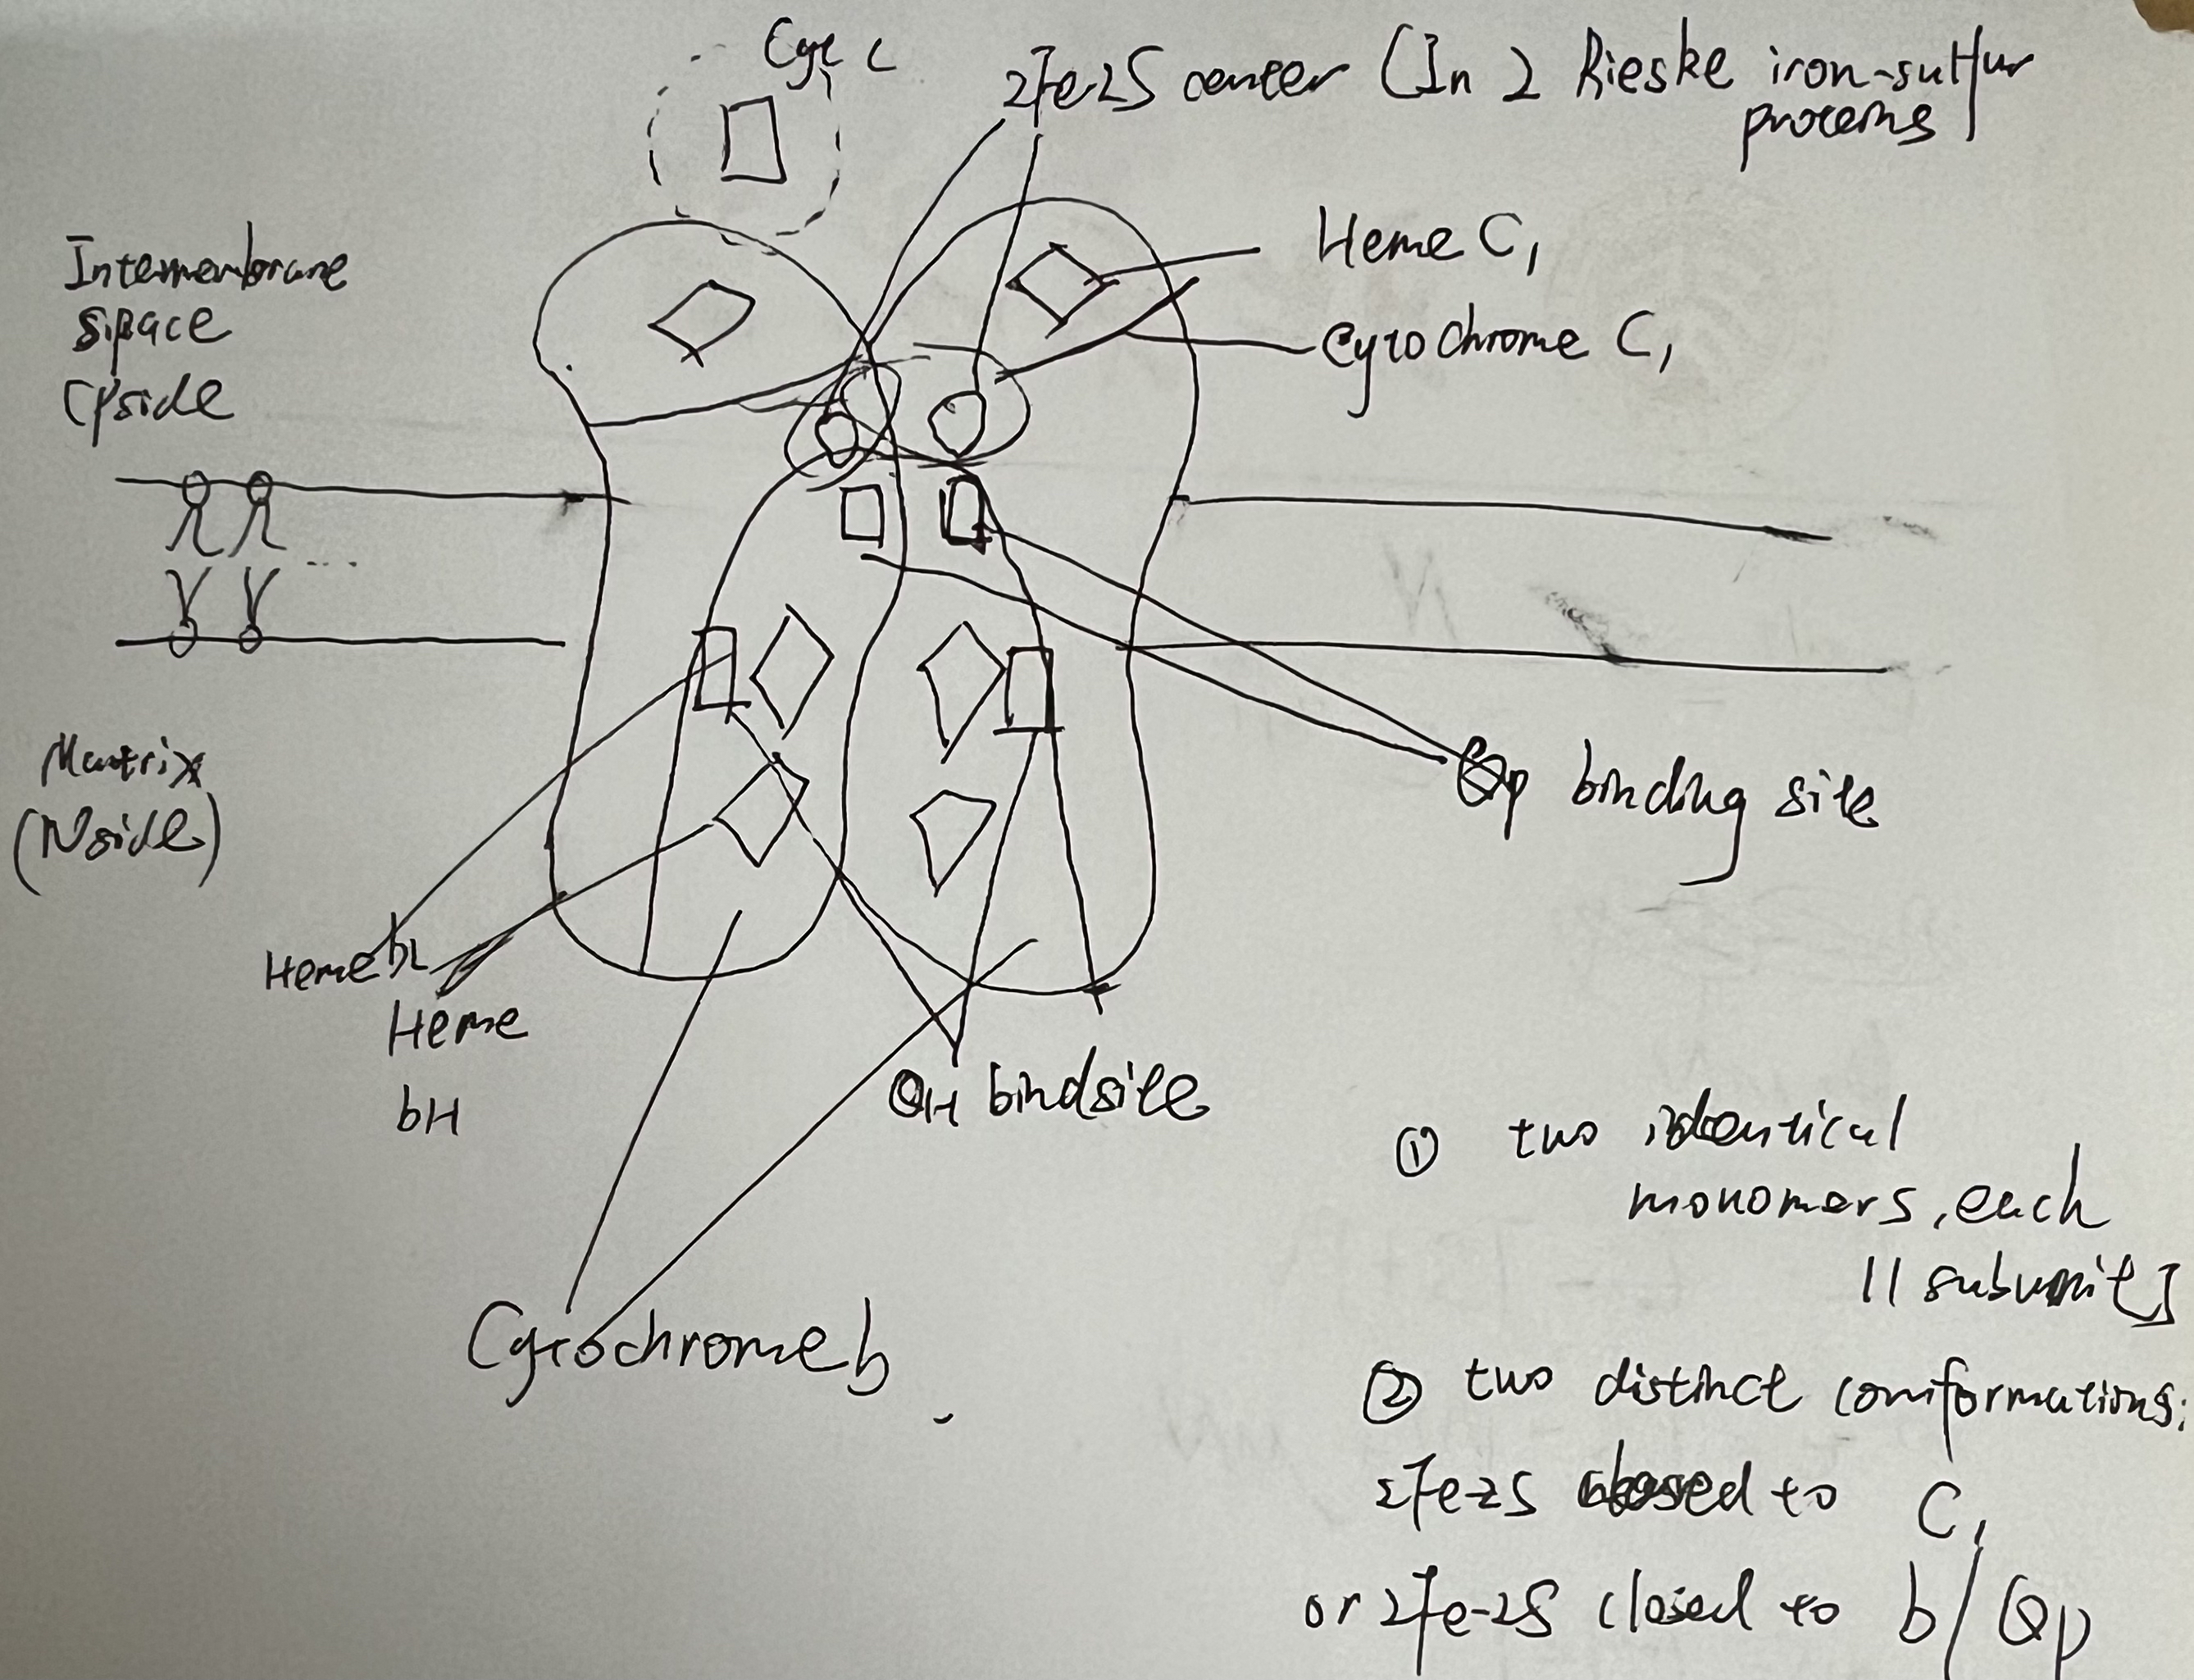 Cyt c
2Fe-2S center (In 2 Rieske iron-sulfur
proteins
Heme C1
Cytochrome C1
Intermembrane
space
(Pside
Matrix
(Nside)
Qp binding site
Heme bL
Heme
bH
QH bindsite
Cytochrome b
① two identical
monomers, each
11 subunits
② two distinct conformations:
2Fe-2S closed to C1
or 2Fe-2S closed to b/Qp